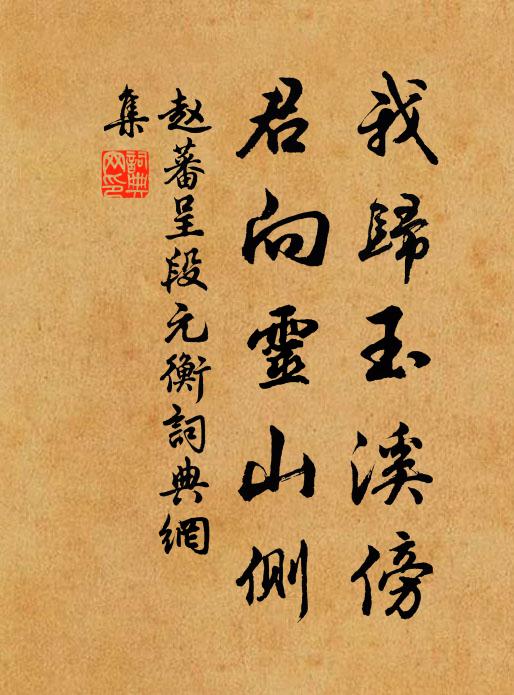 我歸玉溪傍
君向靈山側
赵蕃呈段元衡詞典網
集
詞典
网印